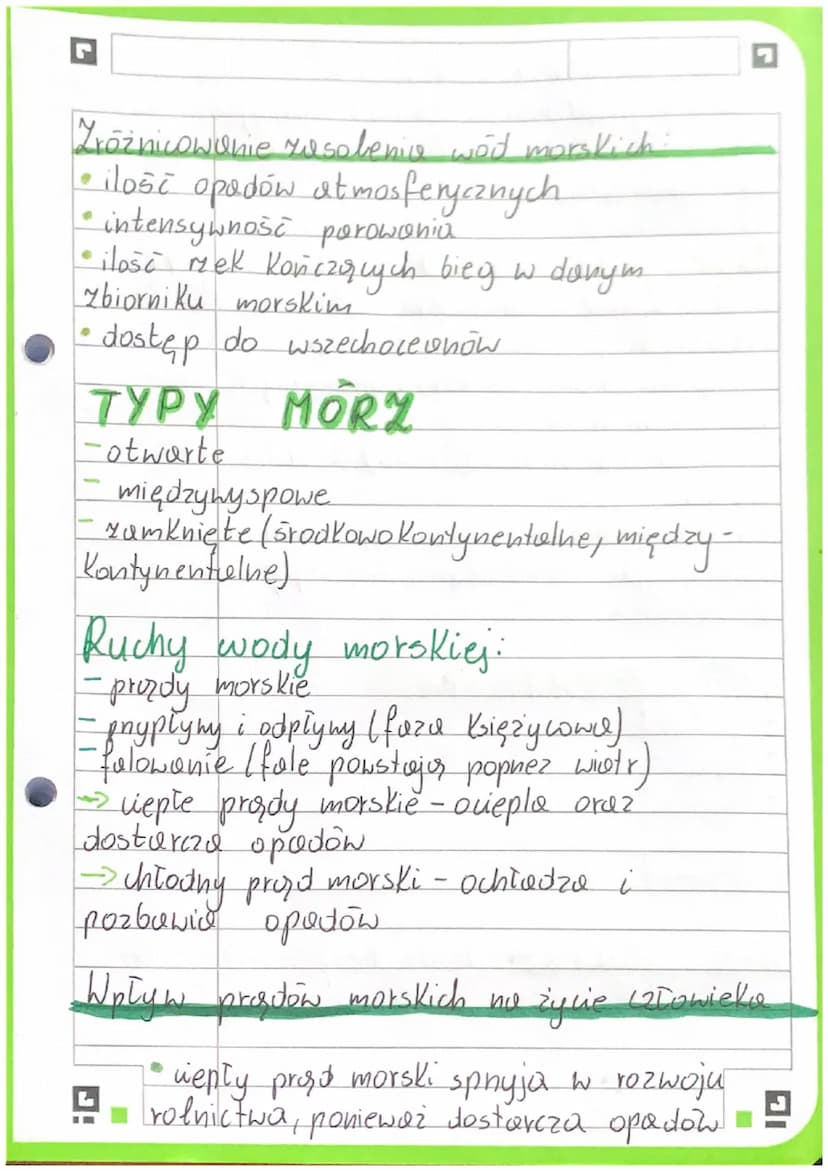 Zróżnicowanie zasolenia wód morskich:
• ilość opadów atmosferycznych
• intensywność parowania
• ilość rzek kończących bieg w danym
zbiorniku morskim
• dostęp do wszechoceanów
TYPY MÓRZ
- otwarte
- międzywyspowe
- zamknięte (środkowokontynentalne, między-
kontynentalne)
Ruchy wody morskiej:
- prądy morskie
- przypływy i odpływy (faza księżycowa)
- falowanie (fale powstają poprzez wiatr)
-> ciepłe prądy morskie - ociepla oraz
dostarcza opadów
-> chłodny prąd morski - ochładza i
pozbawia opadów
Wpływ prądów morskich na życie człowieka
• ciepły prąd morski sprzyja w rozwoju
rolnictwa, ponieważ dostarcza opadów